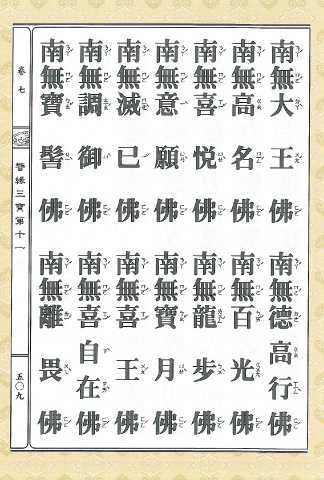 南無大王佛　南無德高行佛
南無高名佛　南無百光佛
南無喜悅佛　南無龍步佛
南無意願佛　南無寶月佛
南無滅已佛　南無喜王佛
南無調御佛　南無喜自在佛
南無寶髻佛　南無離畏佛
卷七　警緣三寶第十一　五〇九